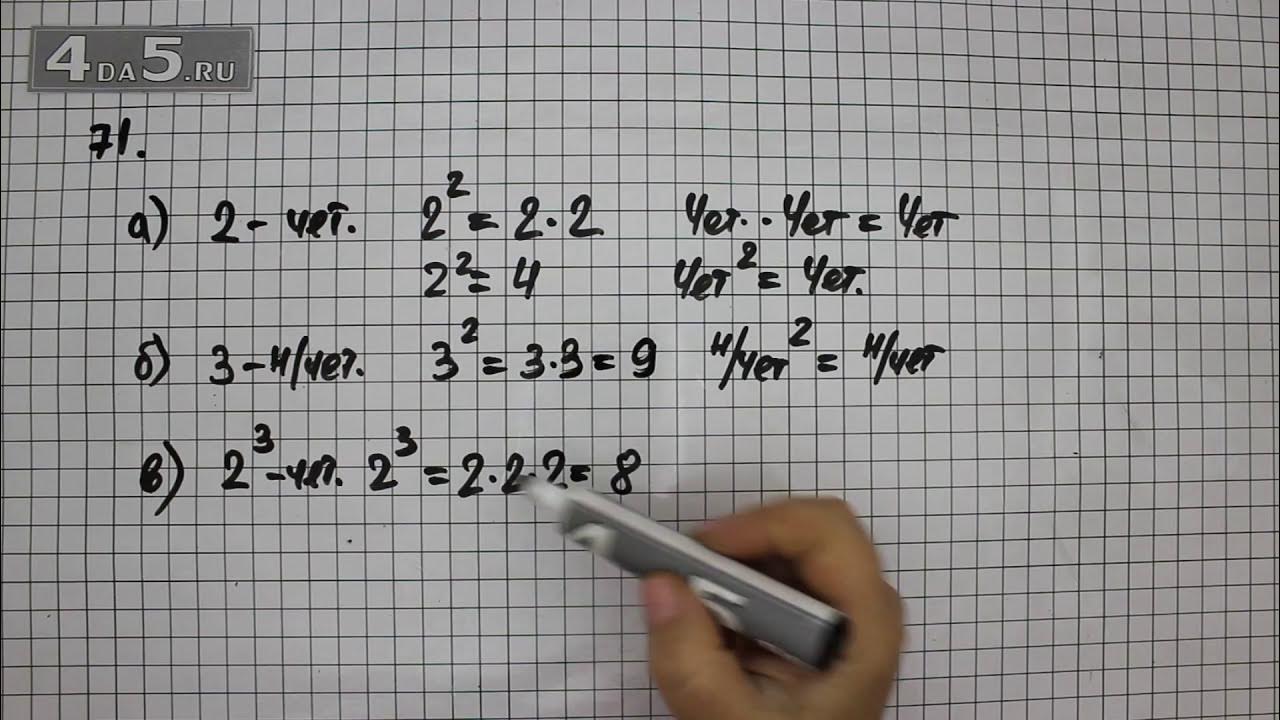 4DA5.RU
71.
а) 2 - чет. 2² = 2·2 Чет. · Чет = Чет
2² = 4 Чет² = Чет.
б) 3 - н/чет. 3² = 3·3 = 9 н/чет² = н/чет
в) 2³ - чет. 2³ = 2·2·2 = 8